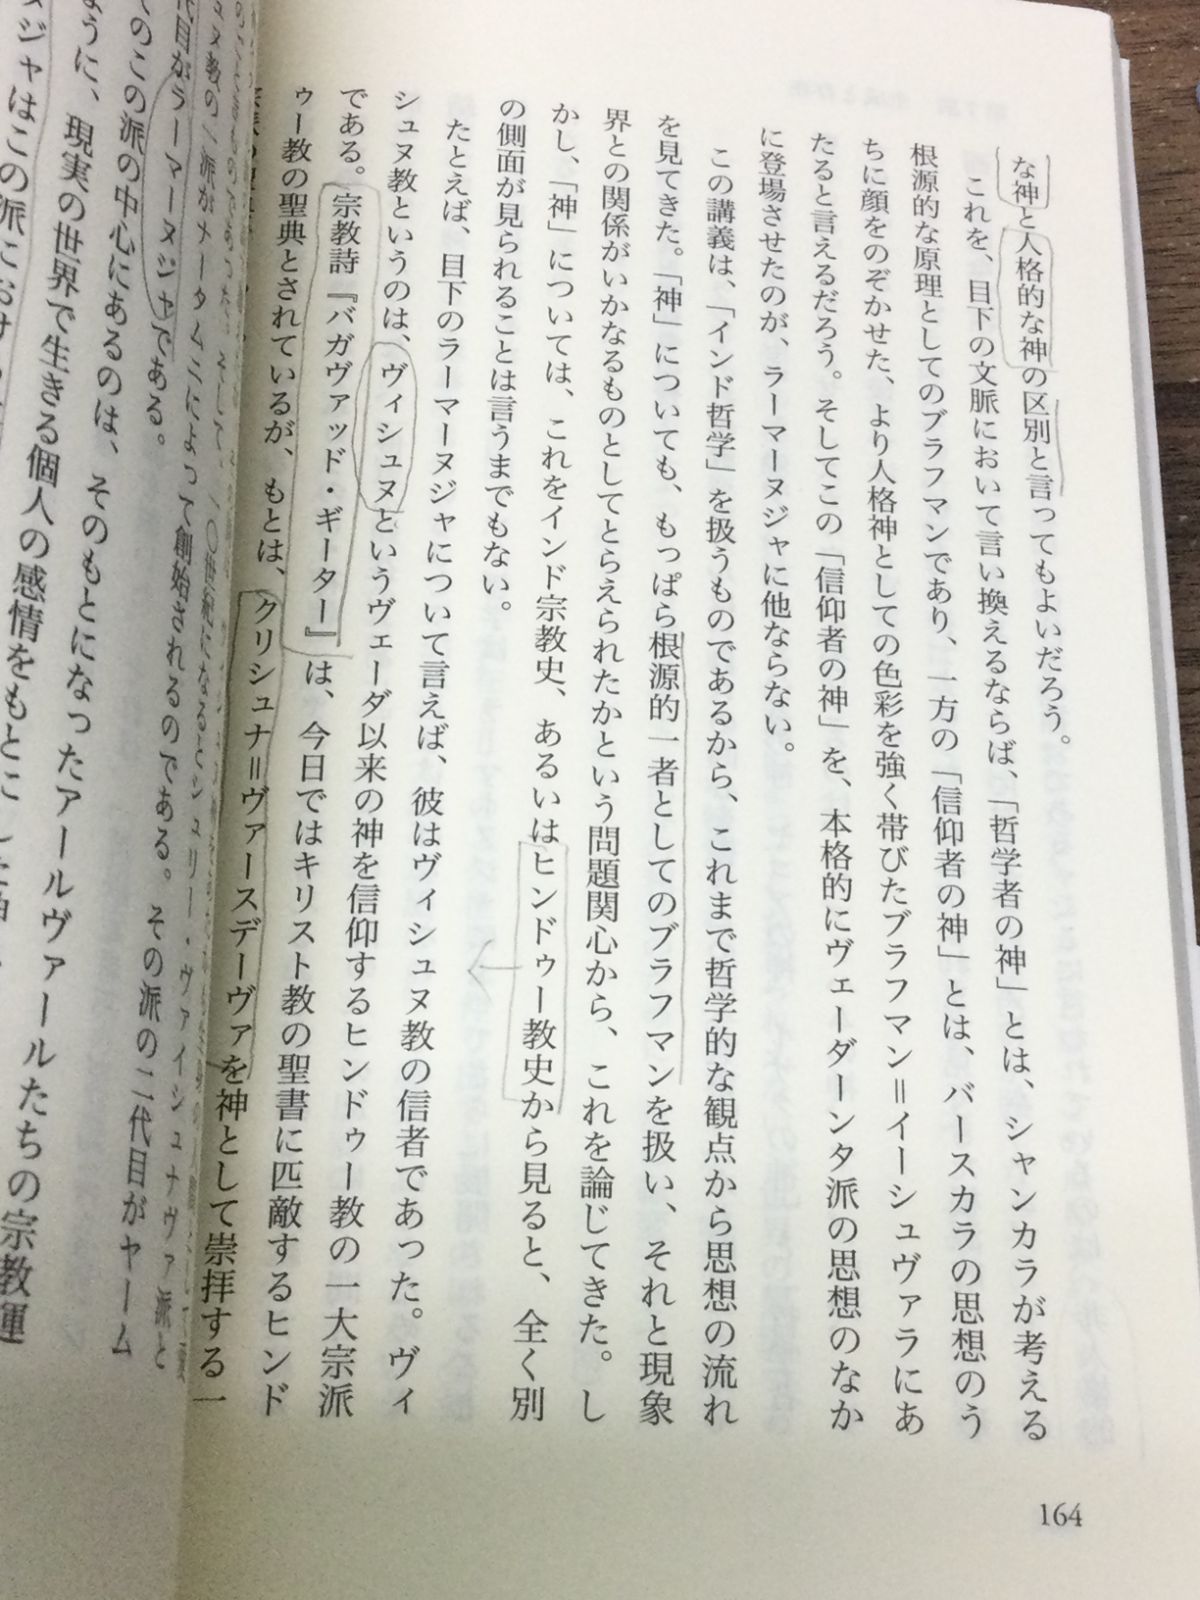 な神と人格的な神の区別と言ってもよいだろう。
これを、目下の文脈において言い換えるならば、「哲学者の神」とは、シャンカラが考える
根源的な原理としてのブラフマンであり、一方の「信仰者の神」とは、バースカラの思想のう
ちに顔をのぞかせた、より人格神としての色彩を強く帯びたブラフマン＝イーシュヴァラにあ
たると言えるだろう。そしてこの「信仰者の神」を、本格的にヴェーダーンタ派の思想のなか
に登場させたのが、ラーマーヌジャに他ならない。
この講義は、「インド哲学」を扱うものであるから、これまで哲学的な観点から思想の流れ
を見てきた。「神」についても、もっぱら根源的一者としてのブラフマンを扱い、それと現象
界との関係がいかなるものとしてとらえられたかという問題関心から、これを論じてきた。し
かし、「神」については、これをインド宗教史、あるいはヒンドゥー教史から見ると、全く別
の側面が見られることは言うまでもない。
たとえば、目下のラーマーヌジャについて言えば、彼はヴィシュヌ教の信者であった。ヴィ
シュヌ教というのは、ヴィシュヌというヴェーダ以来の神を信仰するヒンドゥー教の一大宗派
である。宗教詩『バガヴァッド・ギーター』は、今日ではキリスト教の聖書に匹敵するヒンド
ゥー教の聖典とされているが、もとは、クリシュナ＝ヴァースデーヴァを神として崇拝する一
164
ヌ教の一派がナータムニによって創始されるのである。その派の二代目がヤーム
代目がラーマーヌジャである。
てのこの派の中心にあるのは、そのもとになったアールヴァールたちの宗教運
ように、現実の世界で生きる個人の感情をもとに
ヌジャはこの派にお